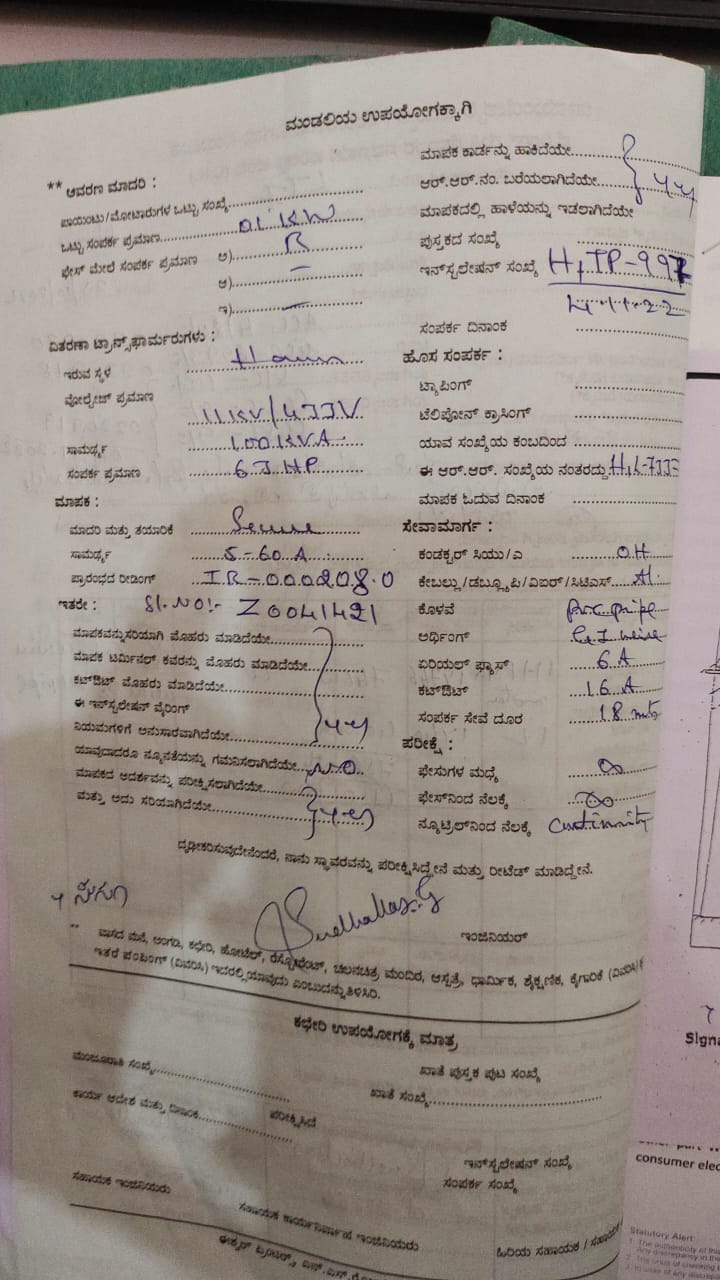 ಮಂಡಲಿಯ ಉಪಯೋಗಕ್ಕಾಗಿ
** ಆವರಣ ಮಾದರಿ :
ಪಾಯಿಂಟು/ಮೋಟಾರುಗಳ ಒಟ್ಟು ಸಂಖ್ಯೆ
ಒಟ್ಟು ಸಂಪರ್ಕ ಪ್ರಮಾಣ 01 KW
ಫೇಸ್ ಮೇಲೆ ಸಂಪರ್ಕ ಪ್ರಮಾಣ ಅ) R
ಆ) –
ಇ) –
ವಿತರಣಾ ಟ್ರಾನ್ಸ್‌ಫಾರ್ಮರುಗಳು :
ಇರುವ ಸ್ಥಳ
ವೋಲ್ಟೇಜ್ ಪ್ರಮಾಣ
11KV/433V
ಸಾಮರ್ಥ್ಯ 100KVA
ಸಂಪರ್ಕ ಪ್ರಮಾಣ 63 HP
ಮಾಪಕ :
ಮಾದರಿ ಮತ್ತು ತಯಾರಿಕೆ Secure
ಸಾಮರ್ಥ್ಯ 5-60 A
ಪ್ರಾರಂಭದ ರೀಡಿಂಗ್ IR-000208.0
ಇತರೇ : Sl.NO:- Z0041421
ಮಾಪಕವನ್ನು ಸರಿಯಾಗಿ ಮೊಹರು ಮಾಡಿದೆಯೇ
ಮಾಪಕ ಟರ್ಮಿನಲ್ ಕವರನ್ನು ಮೊಹರು ಮಾಡಿದೆಯೇ
ಕಟ್‌ಔಟ್ ಮೊಹರು ಮಾಡಿದೆಯೇ
ಈ ಇನ್‌ಸ್ಟಲೇಷನ್ ವೈರಿಂಗ್
ನಿಯಮಗಳಿಗೆ ಅನುಸಾರವಾಗಿದೆಯೇ yes
ಯಾವುದಾದರೂ ನ್ಯೂನತೆಯನ್ನು ಗಮನಿಸಲಾಗಿದೆಯೇ NO
ಮಾಪಕದ ಆದರ್ಶವನ್ನು ಪರೀಕ್ಷಿಸಲಾಗಿದೆಯೇ
ಮತ್ತು ಅದು ಸರಿಯಾಗಿದೆಯೇ yes
ಮಾಪಕ ಕಾರ್ಡನ್ನು ಹಾಕಿದೆಯೇ
ಆರ್.ಆರ್.ನಂ. ಬರೆಯಲಾಗಿದೆಯೇ yes
ಮಾಪಕದಲ್ಲಿ ಹಾಳೆಯನ್ನು ಇಡಲಾಗಿದೆಯೇ
ಪುಸ್ತಕದ ಸಂಖ್ಯೆ
ಇನ್‌ಸ್ಟಲೇಷನ್ ಸಂಖ್ಯೆ
4-1-22
ಸಂಪರ್ಕ ದಿನಾಂಕ
ಹೊಸ ಸಂಪರ್ಕ :
ಟ್ಯಾಪಿಂಗ್
ಟೆಲಿಫೋನ್ ಕ್ರಾಸಿಂಗ್
ಯಾವ ಸಂಖ್ಯೆಯ ಕಂಬದಿಂದ
ಈ ಆರ್.ಆರ್. ಸಂಖ್ಯೆಯ ನಂತರದ್ದು
ಮಾಪಕ ಓದುವ ದಿನಾಂಕ
ಸೇವಾಮಾರ್ಗ :
ಕಂಡಕ್ಟರ್ ಸಿಯು/ಎ OH
ಕೇಬಲ್ಲು/ಡಬ್ಲ್ಯೂಪಿ/ವಿಐಆರ್/ಸಿಟಿಎಸ್ Al
ಕೊಳವೆ pvc pipe
ಅರ್ಥಿಂಗ್ G.I wire
ಏರಿಯಲ್ ಫ್ಯೂಸ್ 6 A
ಕಟ್‌ಔಟ್ 16 A
ಸಂಪರ್ಕ ಸೇವೆ ದೂರ 18 mts
ಪರೀಕ್ಷೆ :
ಫೇಸುಗಳ ಮಧ್ಯೆ ∞
ಫೇಸ್‌ನಿಂದ ನೆಲಕ್ಕೆ ∞
ನ್ಯೂಟ್ರಲ್‌ನಿಂದ ನೆಲಕ್ಕೆ
ದೃಢೀಕರಿಸುವುದೇನೆಂದರೆ, ನಾನು ಸ್ಥಾವರವನ್ನು ಪರೀಕ್ಷಿಸಿದ್ದೇನೆ ಮತ್ತು ರೀಟೆಡ್ ಮಾಡಿದ್ದೇನೆ.
ಇಂಜಿನಿಯರ್
** ವಾಸದ ಮನೆ, ಅಂಗಡಿ, ಕಛೇರಿ, ಹೋಟೆಲ್, ರೆಸ್ಟೋರೆಂಟ್, ಚಲನಚಿತ್ರ ಮಂದಿರ, ಆಸ್ಪತ್ರೆ, ಧಾರ್ಮಿಕ, ಶೈಕ್ಷಣಿಕ, ಕೈಗಾರಿಕೆ (ವಿವರಿಸಿ)
ಇತರೆ ಪಂಪಿಂಗ್ (ವಿವರಿಸಿ) ಇದರಲ್ಲಿ ಯಾವುದು ಎಂಬುದನ್ನು ತಿಳಿಸಿರಿ.
ಕಛೇರಿ ಉಪಯೋಗಕ್ಕೆ ಮಾತ್ರ
ಮಂಜೂರಾತಿ ಸಂಖ್ಯೆ
ಖಾತೆ ಪುಸ್ತಕ ಪುಟ ಸಂಖ್ಯೆ
ಖಾತೆ ಸಂಖ್ಯೆ
ಕಾರ್ಯ ಆದೇಶ ಮತ್ತು ದಿನಾಂಕ
ಪರೀಕ್ಷಿಸಿದೆ
ಇನ್‌ಸ್ಟಲೇಷನ್ ಸಂಖ್ಯೆ
ಸಂಪರ್ಕ ಸಂಖ್ಯೆ
ಸಹಾಯಕ ಇಂಜಿನಿಯರು
ಸಹಾಯಕ ಕಾರ್ಯನಿರ್ವಾಹ ಇಂಜಿನಿಯರು
ಹಿರಿಯ ಸಹಾಯಕ /
Signa
consumer elec
Statutory Alert: